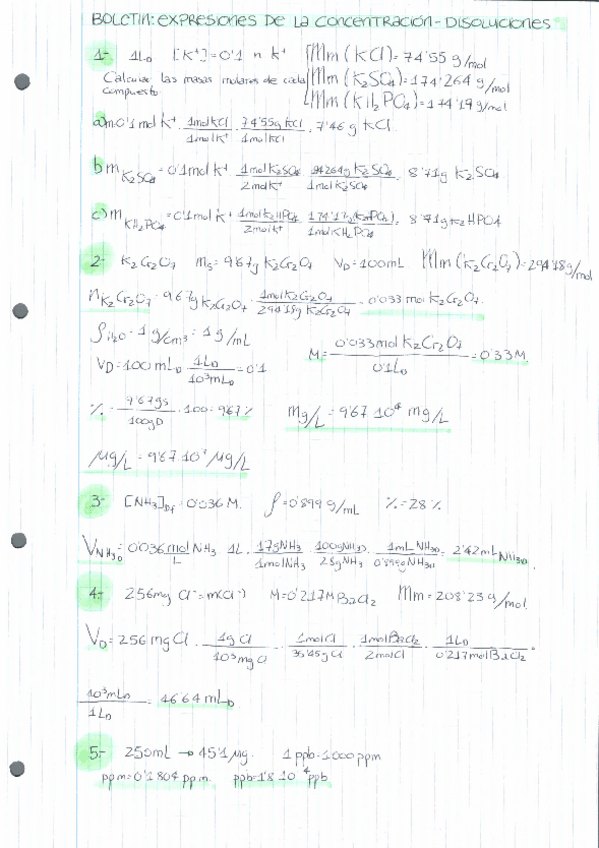 BOLETIN: EXPRESIONES DE LA CONCENTRACIÓN - DISOLUCIONES
1- 1L [K+]=0'1 n K+ Mm (KCl)=74'55 g/mol
Calcular las masas molares de cada compuesto. Mm (K2SO4)=174'264 g/mol
Mm (KH2PO4)=174'19 g/mol
a) m 0'1 mol K+ · 1mol KCl / 1mol K+ · 74'55g KCl / 1mol KCl = 7'46 g KCl
b) m K2SO4 = 0'1mol K+ 1mol K2SO4 / 2mol K+ K2SO4 / 1mol K2SO4 = 8'71g K2SO4
c) m KH2PO4 = 0'1mol K+ 1mol K2HPO4 / 2mol K+ / 1mol KH2PO4 = 8'71g K2HPO4
2- K2Cr2O7 ms = 9'67g K2Cr2O7 VD = 100mL Mm (K2Cr2O7)=294'18g/mol
n K2Cr2O7 = 9'67g K2Cr2O7 · 1mol K2Cr2O7 / 294'18g K2Cr2O7 = 0'033 mol K2Cr2O7.
ρH2O = 1 g/cm3 = 1 g/mL
VD = 100 mLD · 1LD / 10³mLD = 0'1
M = 0'033mol K2Cr2O7 / 0'1LD = 0'33M.
% = 9'67gs / 100gD · 100 = 9'67% mg/L = 9'67 10⁴ mg/L
µg/L = 9'67·10⁷ µg/L
3- [NH3]Df = 0'036 M. ρ=0'899 g/mL % = 28%
V NH3D = 0'036 mol/L NH3 · 1L · 17gNH3 / 1mol NH3 · 100gNH3D / 28gNH3 · 1mL NH3D / 0'899gNH3D = 2'42mL NH3D.
4- 256mg Cl- = m(Cl-) M=0'217M BaCl2 Mm = 208'23 g/mol.
VD = 256 mg Cl · 1g Cl / 10³mg Cl · 1mol Cl / 35'45g Cl · 1mol BaCl2 / 2mol Cl · 1LD / 0'217mol BaCl2 ·
10³mLD / 1LD = 46'64 mLD
5- 250mL → 45'1 µg. 1 ppb = 1000 ppm
ppm = 0'1804 ppm. ppb = 1'8 10⁻⁴ ppb